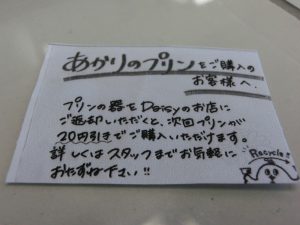 あかりのプリンをご購入の
お客様へ.
プリンの器をDaisyのお店に
ご返却いただくと、次回プリンが
20円引きでご購入いただけます。
詳しくはスタッフまでお気軽に
おたずね下さい!!
Recycle